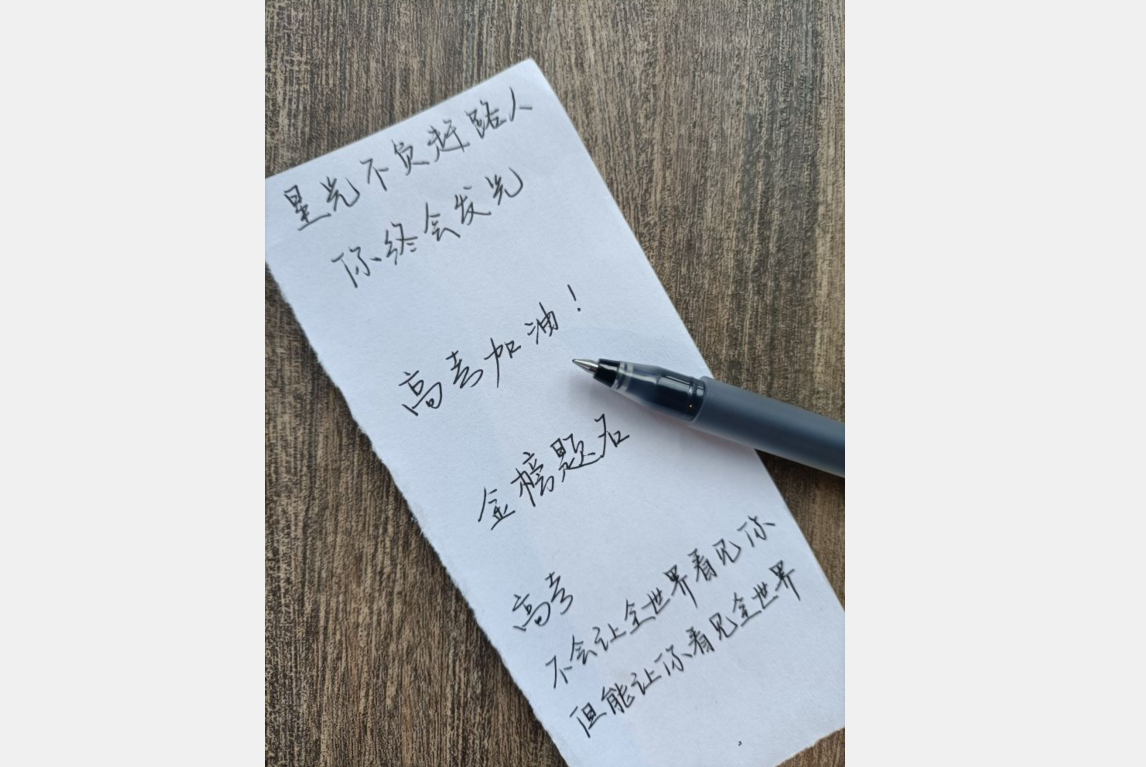 星光不负赶路人
你终会发光
高考加油!
金榜题名
高考
不会让全世界看见你
但能让你看见全世界